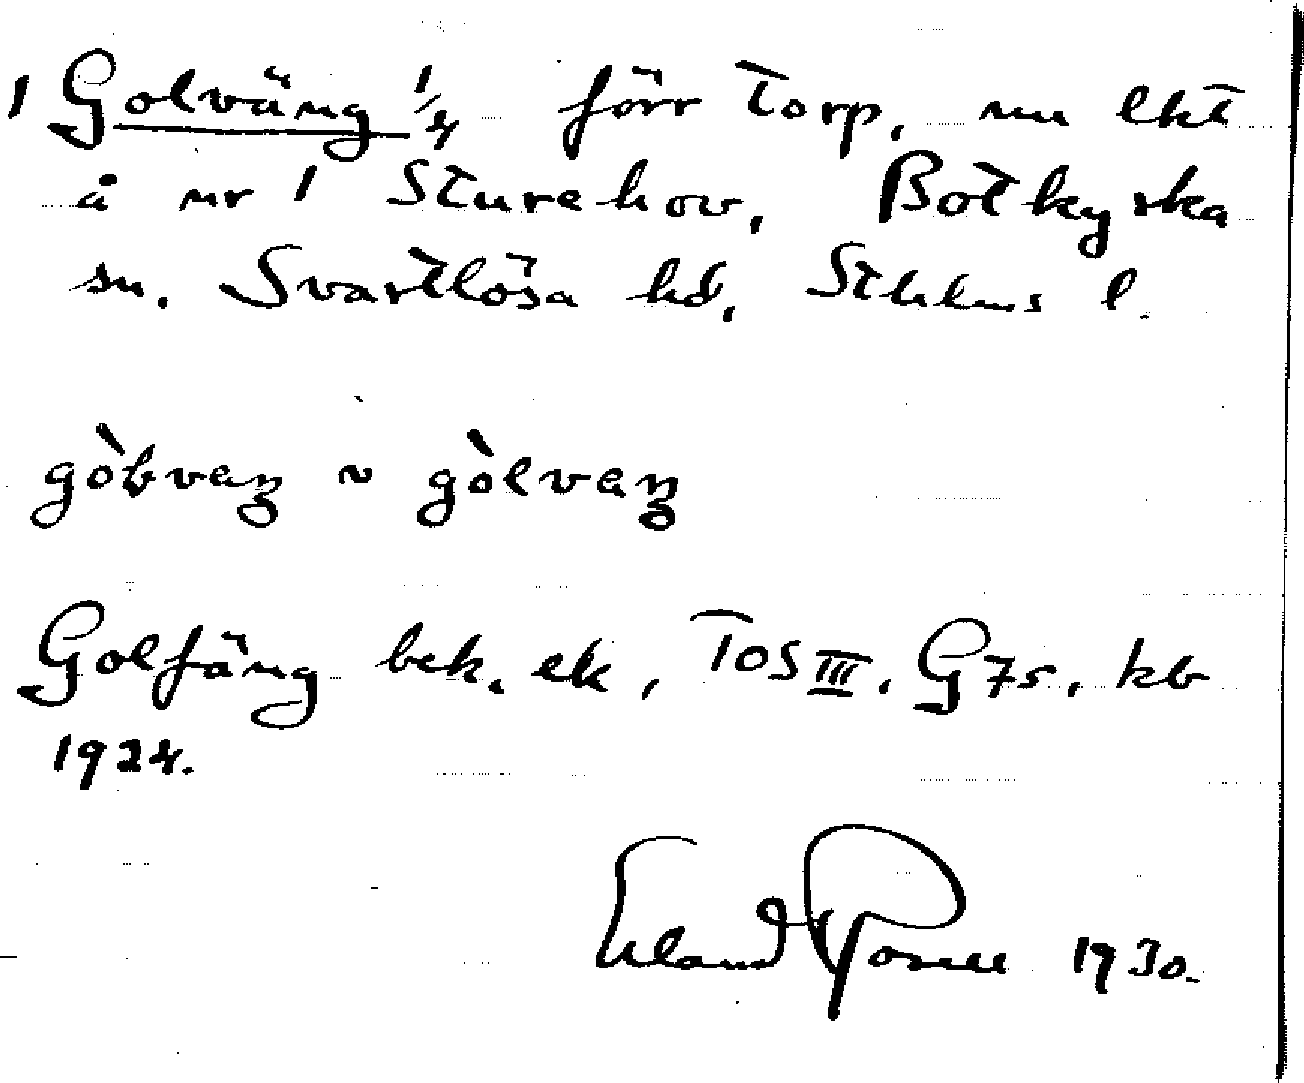 1 Golväng 1/4 förr torp, nu lht
å nr 1 Sturehov, Botkyrka
sn. Svartlösa hd, Sthlms l.
gòbvaŋ ~ gòlvaŋ
Golfäng bek. ek, TOS III. G75, kb
1924.
Erland Rosell 1930.